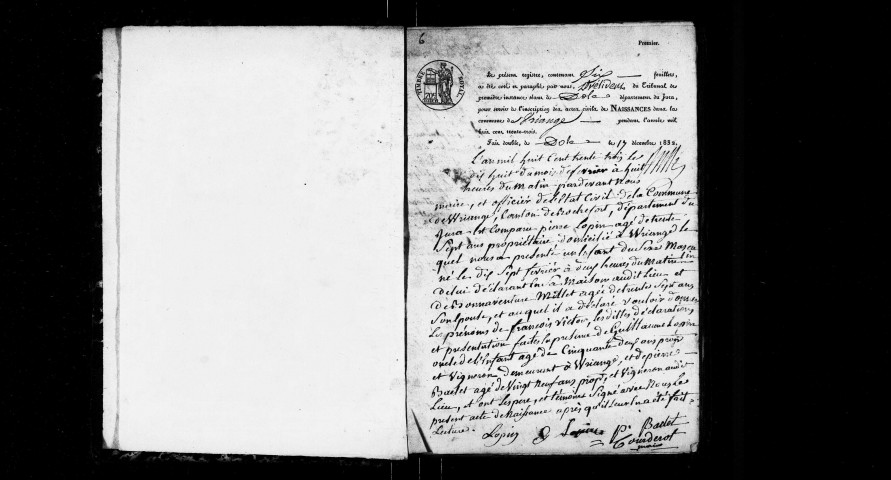 6
Premier.
TIMBRE ROYAL
Le présent registre, contenant Six feuillets,
a été coté et paraphé par nous, Président du Tribunal de
première instance séant de Dole département du Jura,
pour servir de l'inscription des actes civils de NAISSANCES dans la
commune de Vriange pendant l'année mil
huit cent trente-trois.
Fait double, de Dole le 17 décembre 1832.
L'an mil huit Cent trente trois le
dix huit du mois de février à huit
heures du Matin pardevant Nous
maire, et officier de l'état Civil de la Commune
de Wriange, Canton de Rochefort, département du
Jura est Comparu pierre Lopin agé de trente
Sept ans propriétaire domicilié à Wriange le
quel nous a présenté un Enfant du Sexe Mascu
né le dix Sept février à deux heures du Matin
de lui déclarant en sa Maison audit Lieu et
de Bonnaventure Millet agée de trente Sept ans
Son Epouse, et auquel il a déclaré vouloir donner
les prénoms de françois Victor, les dittes déclarations
et présentation faites en présence de Guillaume Lopin
oncle de l'Enfant agé de Cinquante deux ans prop
et Vigneron demeurant à Wriange, et de pierre
Baelet agé de Vingt Neuf ans prop, et Vigneron audit
Lieu, et ont les pere, et témoins Signé avec Nous Le
présent acte de Naissance après qu'il leur en a été fait
Lecture.
Lopin G Lopin P Baelet
Tourderot
maire